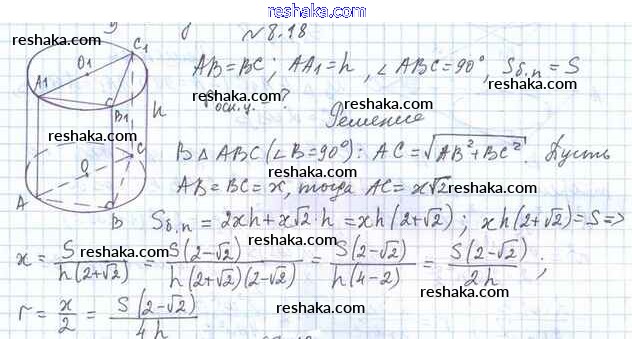 reshaka.com
№ 8.18
AB=BC; AA₁=h, ∠ABC=90°, Sб.п=S
?
Решение
В △ABC (∠B=90°): AC=√(AB²+BC²). Пусть
AB=BC=x, тогда AC=x√2
Sб.п = 2xh+x√2·h = xh(2+√2); xh(2+√2)=S =>
x = S/(h(2+√2)) = S(2-√2)/(h(2+√2)(2-√2)) = S(2-√2)/(h(4-2)) = S(2-√2)/(2h);
r = x/2 = S(2-√2)/(4h)
C₁
O₁
A₁
B₁
h
C
O
A
B
reshaka.com
reshaka.com
reshaka.com
reshaka.com
reshaka.com
reshaka.com
reshaka.com
reshaka.com
reshaka.com
reshaka.com
reshaka.com
reshaka.com